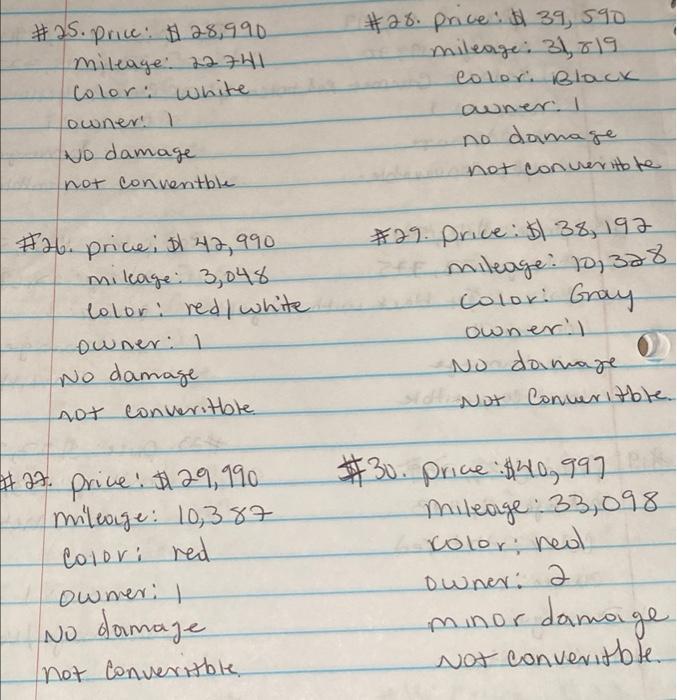 #25. price: $ 28,990
mileage: 22741
color: white
owner: 1
No damage
not conventble
#26. price: $ 42,990
mileage: 3,048
color: red/white
owner: 1
No damage
not converitble
#27. price: $ 29,990
mileage: 10,387
color: red
owner: 1
No damage
not converitble.
#28. price: $ 39,590
mileage: 31,819
color: Black
owner: 1
no damage
not converitble
#29. price: $ 38,192
mileage: 10,328
color: Gray
owner: 1
No damage
Not Converitble.
#30. price: $40,997
mileage: 33,098
color: red
owner: 2
minor damage
Not converitble.